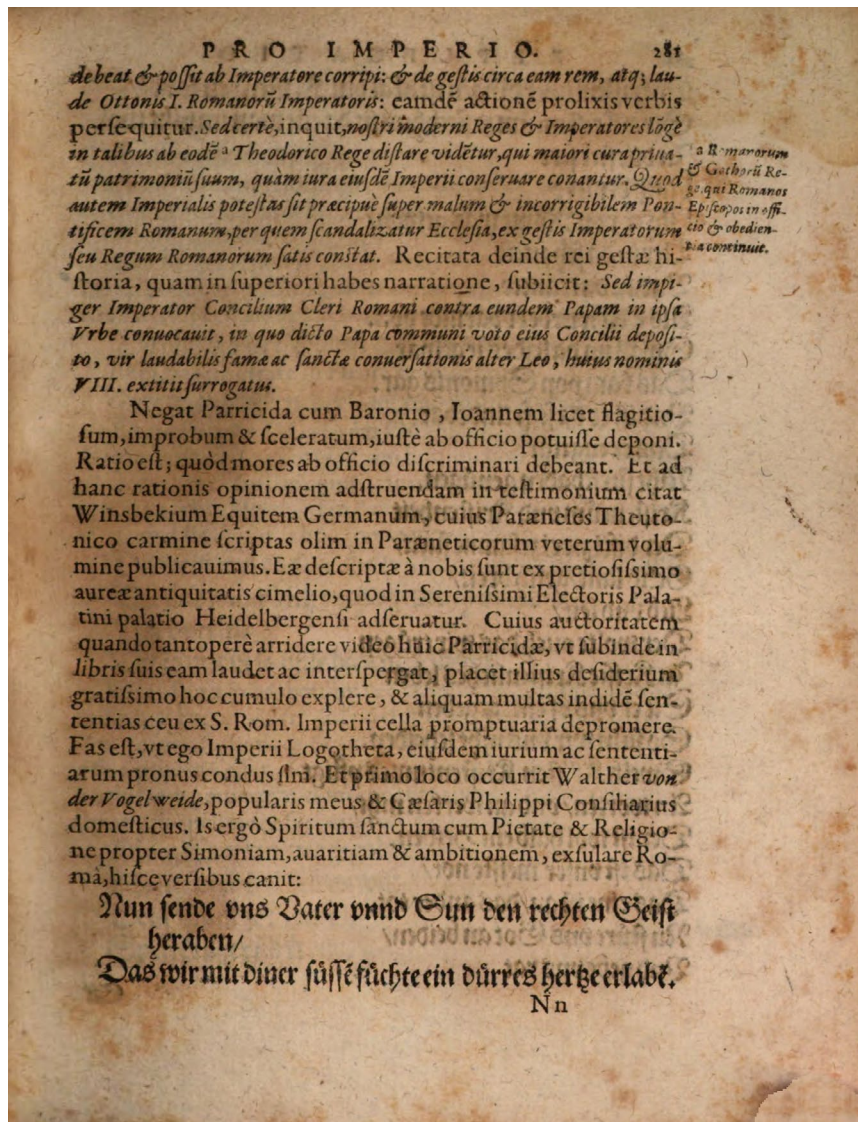 PRO IMPERIO. 281
debeat & poſſit ab Imperatore corripi: & de geſtis circa eam rem, atq; lau-
de Ottonis I. Romanorũ Imperatoris: eamdẽ actionẽ prolixis verbis
perſequitur. Sed certè, inquit, noſtri moderni Reges & Imperatores lõgè
in talibus ab eodẽ ᵃ Theodorico Rege diſtare vidẽtur, qui maiori cura priua-
tũ patrimoniũ ſuum, quàm iura eiuſdẽ Imperii conſeruare conantur. Quod
autem Imperialis poteſtas ſit præcipuè ſuper malum & incorrigibilem Pon-
tificem Romanum, per quem ſcandalizatur Eccleſia, ex geſtis Imperatorum
ſeu Regum Romanorum ſatis conſtat. Recitata deinde rei geſtæ hi-
ſtoria, quam in ſuperiori habes narratione, ſubiicit: Sed impi-
ger Imperator Concilium Cleri Romani contra eundem Papam in ipſa
Vrbe conuocauit, in quo dicto Papa communi voto eius Concilii depoſi-
to, vir laudabilis famæ ac ſanctæ conuerſationis alter Leo, huius nominis
VIII. extitit ſurrogatus.
a Romanorum
& Gothorũ Re-
ge qui Romanos
Epiſcopos in offi-
cio & obedien-
tia continuit.
Negat Parricida cum Baronio, Ioannem licet flagitio-
ſum, improbum & ſceleratum, iuſtè ab officio potuiſſe deponi.
Ratio eſt; quòd mores ab officio diſcriminari debeant. Et ad
hanc rationis opinionem adſtruendam in teſtimonium citat
Winsbekium Equitem Germanum, cuius Paræneſes Theuto-
nico carmine ſcriptas olim in Paræneticorum veterum volu-
mine publicauimus. Eæ deſcriptæ à nobis ſunt ex pretioſiſsimo
aureæ antiquitatis cimelio, quod in Sereniſsimi Electoris Pala-
tini palatio Heidelbergenſi adſeruatur. Cuius auctoritatem
quando tantoperè arridere video huic Parricidæ, vt ſubinde in
libris ſuis eam laudet ac interſpergat, placet illius deſiderium
gratiſsimo hoc cumulo explere, & aliquam multas indidẽ ſen-
tentias ceu ex S. Rom. Imperii cella promptuaria depromere.
Fas eſt, vt ego Imperii Logotheta, eiuſdem iurium ac ſententi-
arum promus condus ſim. Et primo loco occurrit Walther von
der Vogelweide, popularis meus & Cæſaris Philippi Conſiliarius
domeſticus. Is ergò Spiritum ſanctum cum Pietate & Religio-
ne propter Simoniam, auaritiam & ambitionem, exſulare Ro-
mà, hiſce verſibus canit:
Nun ſende vns Vater vnnd Sun den rechten Geiſt
heraben/
Das wir mit diner ſüſſẽ füchte ein dürres hertze erlabẽ.
Nn